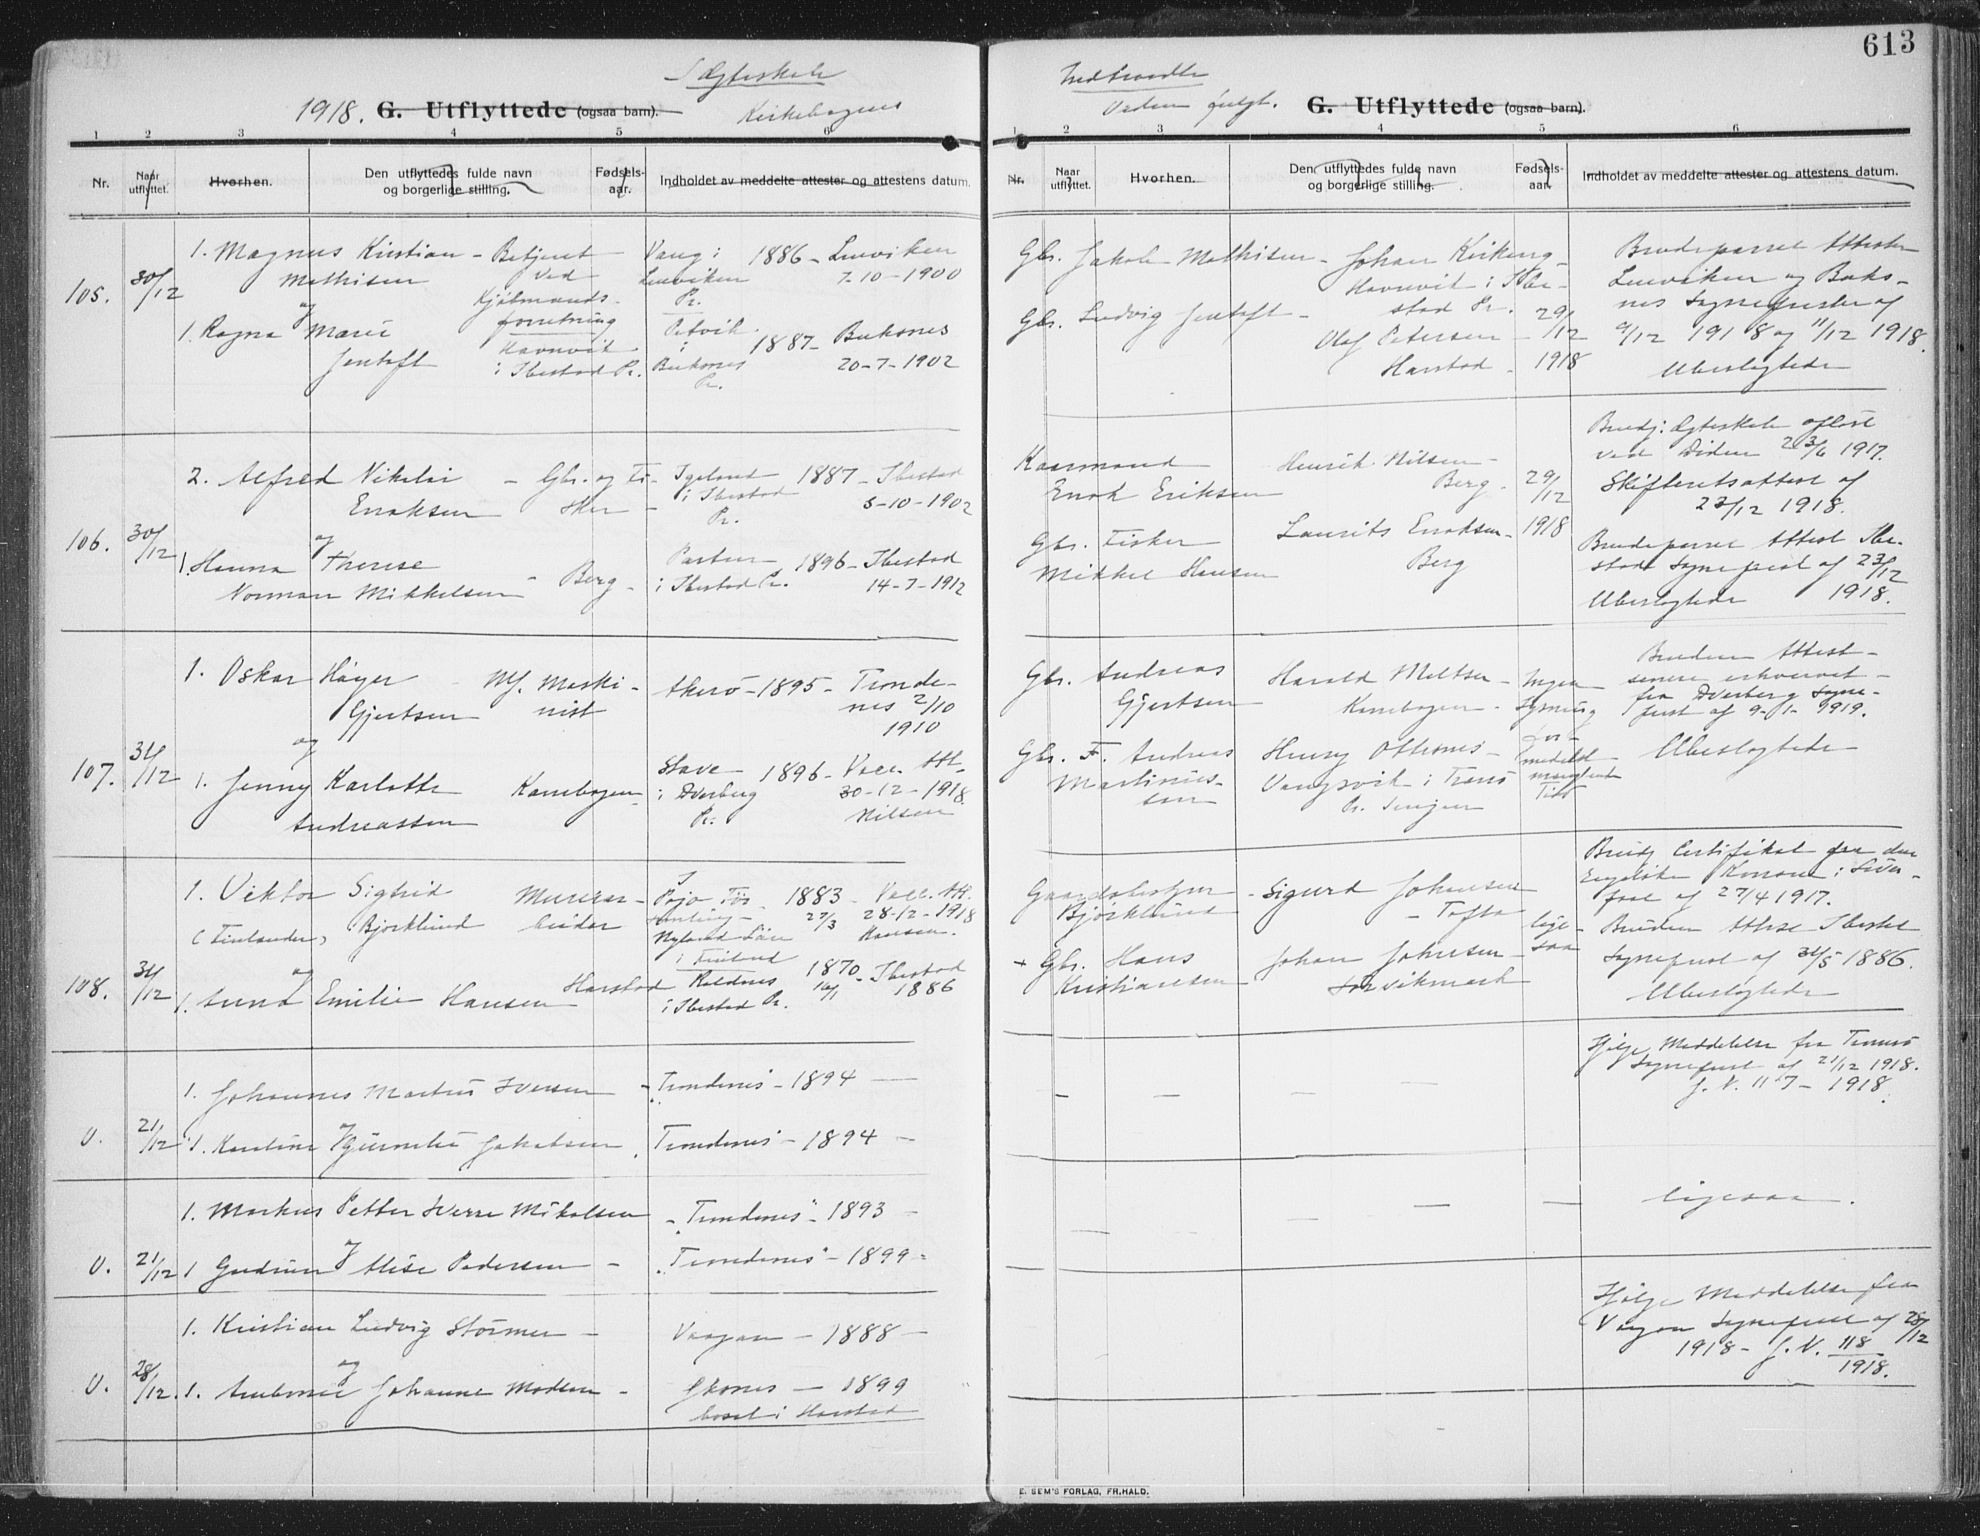 613
I Ægteskab
Indtraadte
1918. G. Utflyttede (ogsaa barn).
Kirkebogens
Orden fulgt.
G. Utflyttede (ogsaa barn).
1 2 3 4 5 6
1 2 3 4 5 6
Nr. Naar utflyttet. Hvorhen. Den utflyttedes fulde navn og borgerlige stilling. Fødsels-aar. Indholdet av meddelte attester og attestens datum.
Nr. Naar utflyttet. Hvorhen. Den utflyttedes fulde navn og borgerlige stilling. Fødsels-aar. Indholdet av meddelte attester og attestens datum.
105. 30/12
1. Magnus Kristian Mathisen
Betjent ved Kjøbmandsforretning
Havnvik i Ibestad Pr.
Vang i Lenviken Pr.
1886 - Lenviken
7-10-1900
og
1. Ragna Marie Jentoft
i Buksnes Pr.
1887 - Buksnes
20-7-1902
Gbr. Jakob Mathisen -
Gbr. Ludvig Jentoft -
Johan Kirkeng -
Havnvik i Ibestad Pr.
Olaf Petersen -
Harstad -
29/12
1918
Brudeparret Attester
Lenviken og Buksnes Sogneprester af
9/12 1918 og 11/12 1918.
Ubeslægtede
106. 30/12
2. Alfred Nikolai Enoksen
- Gbr. og Fisker -
i Ibestad Pr.
1887 - Ibestad
5-10-1902
og
1. Hanna Therese
Norman Mikkelsen
- Berg -
i Ibestad Pr.
1896 - Ibestad
14-7-1912
Enok Eriksen
Gbr. Fisker
Mikkel Hansen
Henrik Nilsen -
Berg -
Laurits Enoksen -
Berg
29/12
1918
Brudg: Ægteskab opløst
ved Døden 23/6 1917.
Skifteretsattest af
23/12 1918.
Brudeparret Attest Ibestad Sogneprest af 23/12
1918.
Ubeslægtede
107. 31/12
1. Oskar Høyer Gjertsen
Mf. Maskinist
Akerø - 1895 - Trondenes 2/10
1910
og
1. Jenny Karlotte
Andreassen
Kanebogen
Stave
i Dverberg
Pr.
1896 - Vacc. Att.
30-12-1918
Nilsen
Gbr. Andreas
Gjertsen
Gbr. F. Andreas
Martinussen
Harald Meltsen -
Kanebogen -
Henry Ottesnes -
Vangsvik i Tranø
Pr. Senjen
Ingen
Lysning
Tid
Bruden Attest -
senere erhvervet -
fra Dverberg Sogneprest af 9-1-1919.
Ubeslægtede
108. 31/12
1. Viktor Sigfrid
(Finlænder) Bjørklund
Murerarbeider
Nyland Län
i Finland
1883 - Vacc. Att.
27/3 28-12-1918
Hansen.
og
1. Anna Emilie Hansen
Harstad
Roldnes
i Ibestad Pr.
1870 - Ibestad
16/1 1886
Gaardsbestyrer
Bjørklund
+ Gbr. Hans
Kristiansen
- Sigurd Johansen
- Tofta
Johan Johnsen -
Sørvikmark
ligesaa
Brudg Certifikat fra den
Engelske Konsul i Liverpool af 27/4 1917.
Bruden Attest Ibestad
Sogneprest af 31/5 1886.
Ubeslægtede
U. 21/12
1. Johannes Martin Iversen
- Trondenes - 1894 -
og
1. Karoline Jakobsen
Trondenes - 1894 -
Ifølge Meddelelse fra Tromsø
Sogneprest af 21/12 1918.
J. N. 117 - 1918.
U. 21/12
1. Markus Petter Mikalsen
- Trondenes - 1893 -
og
1 Gudrun Alise Pedersen -
Trondenes - 1899 -
ligesaa.
U. 28/12.
1. Kristian Ludvig Størmer -
Vaagan - 1888 -
og
1. Johanne Madsen -
1899
bosat i Harstad
Ifølge Meddelelse fra
Vaagan Sogneprest af 28/12
1918 - J. N. 118
1918.
E. SEM'S FORLAG, FR.HALD.